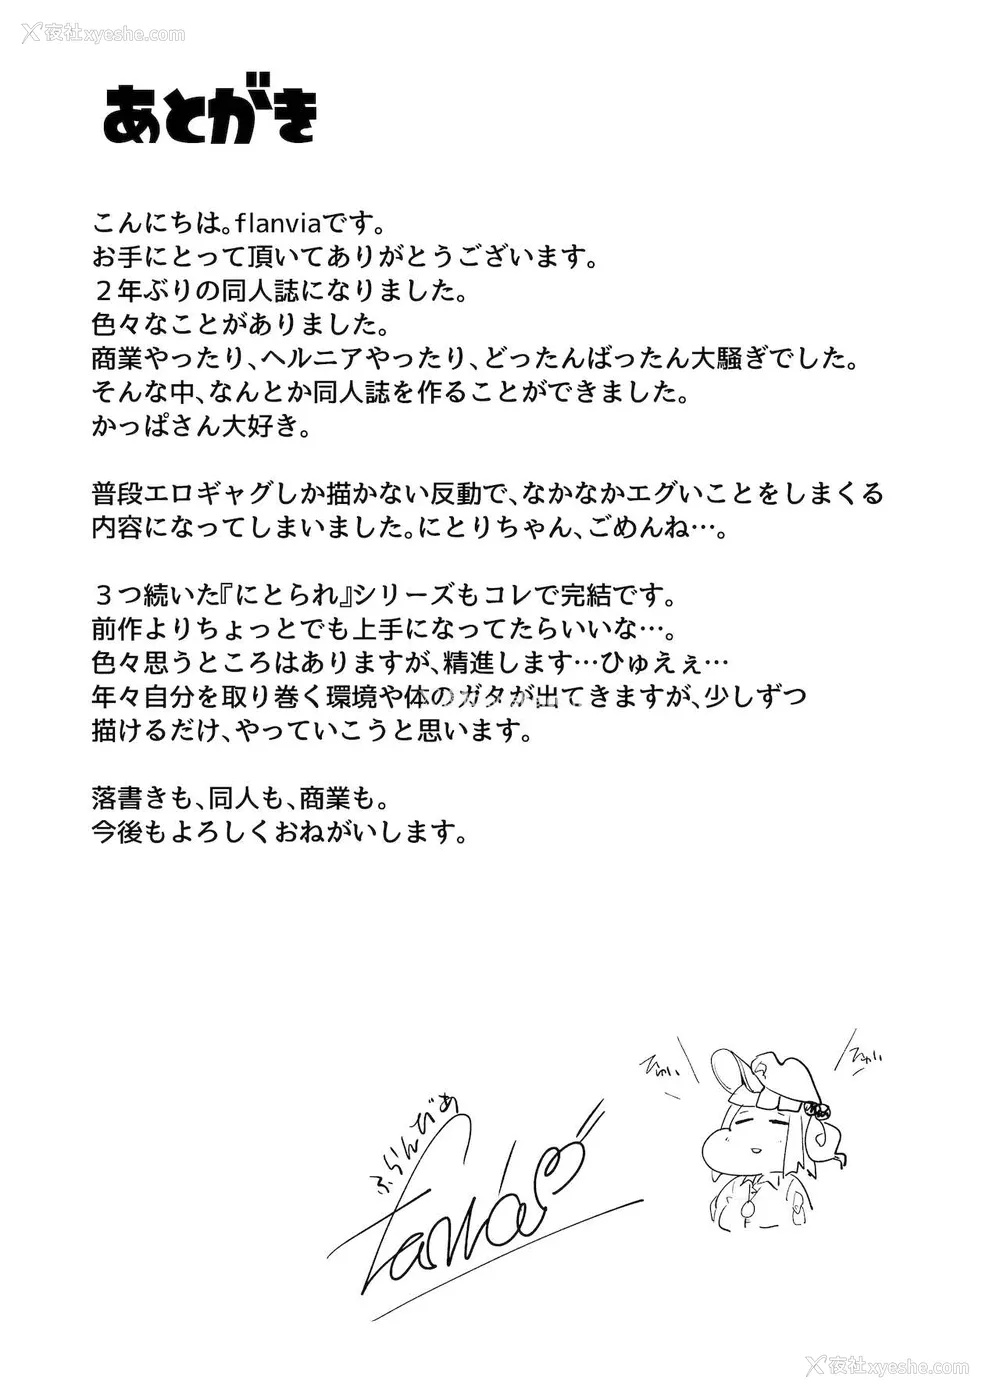 夜社xyeshe.com
あとがき
こんにちは。flanviaです。
お手にとって頂いてありがとうございます。
２年ぶりの同人誌になりました。
色々なことがありました。
商業やったり、ヘルニアやったり、どったんばったん大騒ぎでした。
そんな中、なんとか同人誌を作ることができました。
かっぱさん大好き。
普段エロギャグしか描かない反動で、なかなかエグいことをしまくる
内容になってしまいました。にとりちゃん、ごめんね…。
３つ続いた『にとられ』シリーズもコレで完結です。
前作よりちょっとでも上手になってたらいいな…。
色々思うところはありますが、精進します…ひゅえぇ…
年々自分を取り巻く環境や体のガタが出てきますが、少しずつ
描けるだけ、やっていこうと思います。
落書きも、同人も、商業も。
今後もよろしくおねがいします。
ふらんびあ
夜社xyeshe.com